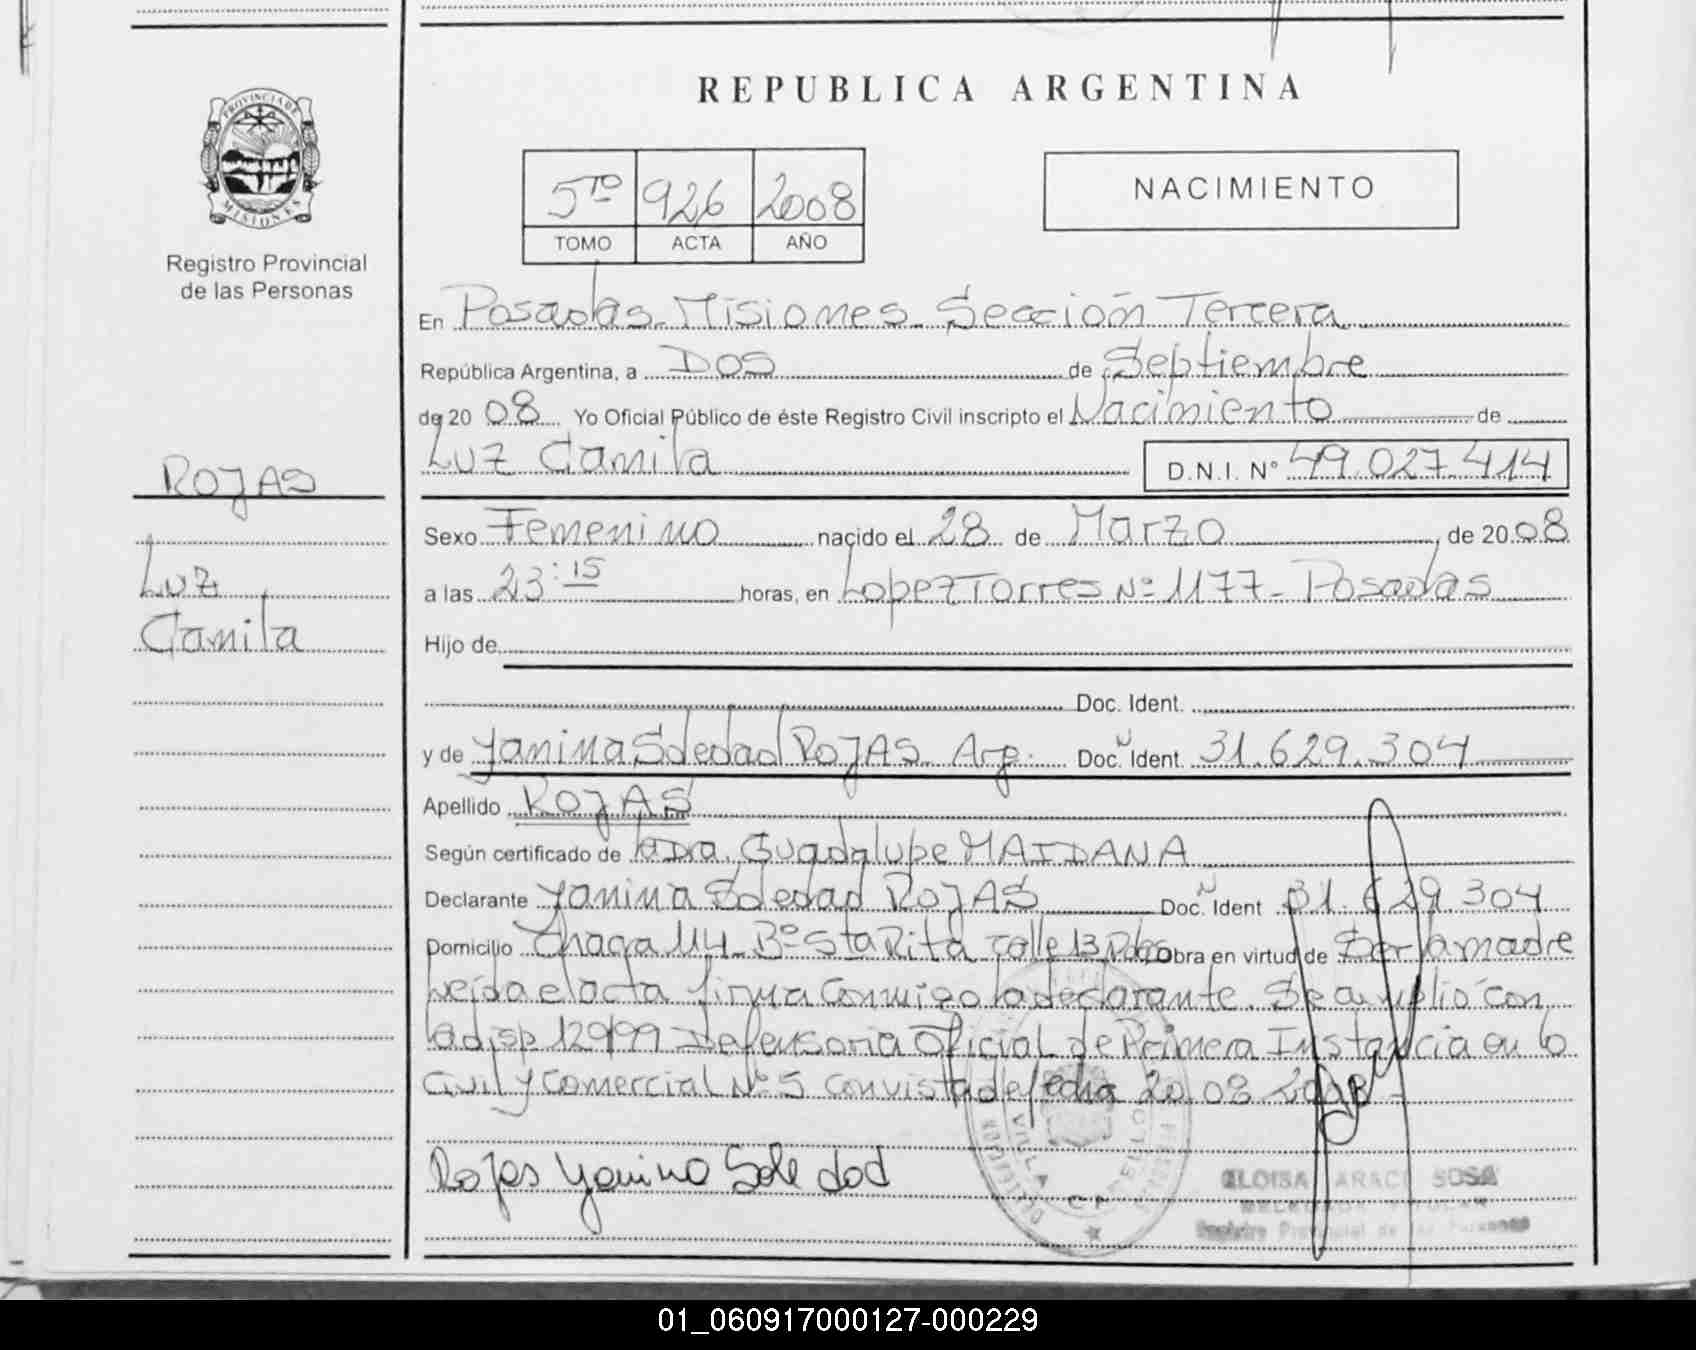 REPUBLICA ARGENTINA
PROVINCIA DE
MISIONES
Registro Provincial
de las Personas
5to 926 2008
TOMO ACTA AÑO
NACIMIENTO
En Posadas Misiones Sección Tercera
República Argentina, a DOS de Septiembre
de 20 08 Yo Oficial Público de éste Registro Civil inscripto el Nacimiento de
Luz Camila D.N.I. N° 49.027.414
ROJAS
Luz
Camila
Sexo Femenino nacido el 28 de Marzo de 20 08
a las 23:15 horas, en Lopez Torres Nº 1177 - Posadas
Hijo de
Doc. Ident.
y de Yanina Soledad ROJAS Arg. Doc. Ident. 31.629.304
Apellido ROJAS
Según certificado de la Dra. Guadalupe MAIDANA
Declarante Yanina Soledad ROJAS Doc. Ident 31.629.304
Domicilio Chacra 114 Bº Sta Rita Calle 13 Pdas Obra en virtud de Ser la madre
leída el acta firma conmigo la declarante. Se cumplio con
la disp 129/99 Defensoria Oficial de Primera Instancia en lo
Civil y Comercial Nº 5 con vista de fecha 20 08 2008 -
Rojas Yanina Soledad
SOSA
Registro Provincial de las Personas
01_060917000127-000229